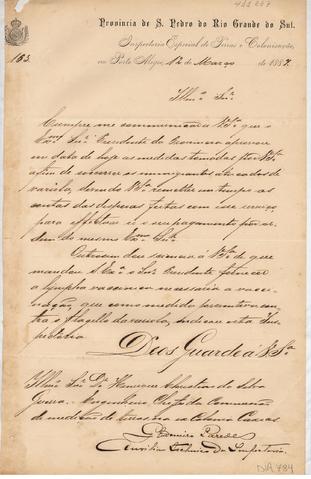 Provincia de S. Pedro do Rio Grande do Sul.
Inspectoria Especial de Terras e Colonisação,
163.
em Porto Alegre, 12 de Março de 1887.
Illmo Snr.
Cumpre me communicar a V. Sa. que o
Exmo Snr. Presidente da Provincia approvou
em data de hoje as medidas tomadas por V. Sa.
afim de soccorrer os immigrantes atacados de
variola, devendo V. Sa. remetter em tempo as
contas das despezas feitas com esse serviço
para effectuar o seu pagamento por or-
dem do mesmo Exmo Snr.
Outrosim dou sciencia a V. Sa. de que
mandou S. Exa. o Snr. Presidente fornecer
a lympha vaccinica necessaria a vacci-
nação, que como medida preventiva con-
tra o flagello da variola, indicou esta Ins-
pectoria.
Deos Guarde á V. Sa.
Illmo Snr. Dr. Manoel Christino da Silva
Engenheiro Chefe da Commissão
de medição de terras na ex Colonia Caxias
Auxiliar technico da Inspectoria
DA 784